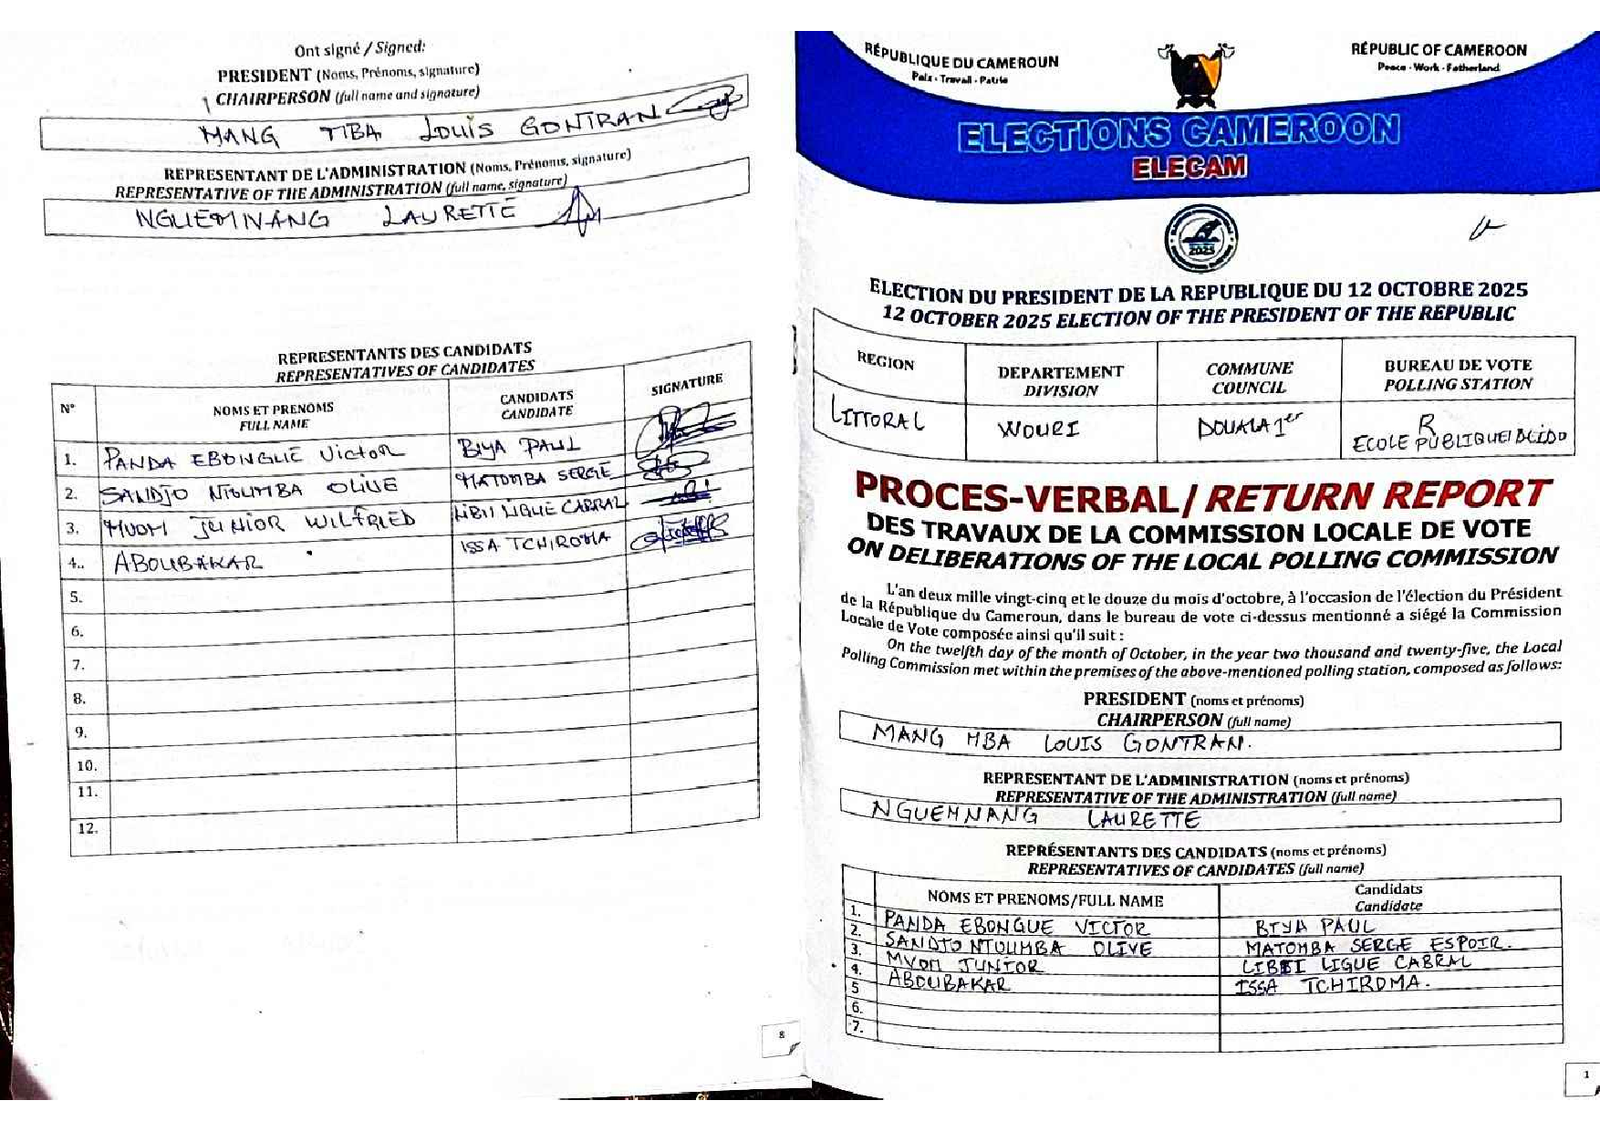 Ont signé / Signed:
PRESIDENT (Noms, Prénoms, signature)
CHAIRPERSON (full name and signature)
MANG MBA LOUIS GONTRAN
REPRESENTANT DE L'ADMINISTRATION (Noms, Prénoms, signature)
REPRESENTATIVE OF THE ADMINISTRATION (full name, signature)
NGUEMNANG LAURETTE
REPRESENTANTS DES CANDIDATS
REPRESENTATIVES OF CANDIDATES
N° NOMS ET PRENOMS CANDIDATS SIGNATURE
FULL NAME CANDIDATE
1. PANDA EBONGUE Victor BIYA PAUL
2. SANDJO NTOUMBA OLIVE MATOMBA SERGE
3. MVOM JUNIOR WILFRIED LIBII LIGUE CABRAL
4.. ABOUBAKAR ISSA TCHIROMA
5.
6.
7.
8.
9.
10.
11.
12.
8
RÉPUBLIQUE DU CAMEROUN
Paix - Travail - Patrie
RÉPUBLIC OF CAMEROON
Peace - Work - Fatherland
ELECTIONS CAMEROON
ELECAM
2025
ELECTION DU PRESIDENT DE LA REPUBLIQUE DU 12 OCTOBRE 2025
12 OCTOBER 2025 ELECTION OF THE PRESIDENT OF THE REPUBLIC
REGION DEPARTEMENT COMMUNE BUREAU DE VOTE
DIVISION COUNCIL POLLING STATION
LITTORAL WOURI DOUALA 1er R
ECOLE PUBLIQUE
PROCES-VERBAL / RETURN REPORT
DES TRAVAUX DE LA COMMISSION LOCALE DE VOTE
ON DELIBERATIONS OF THE LOCAL POLLING COMMISSION
L'an deux mille vingt-cinq et le douze du mois d'octobre, à l'occasion de l'élection du Président
de la République du Cameroun, dans le bureau de vote ci-dessus mentionné a siégé la Commission
Locale de Vote composée ainsi qu'il suit :
On the twelfth day of the month of October, in the year two thousand and twenty-five, the Local
Polling Commission met within the premises of the above-mentioned polling station, composed as follows:
PRESIDENT (noms et prénoms)
CHAIRPERSON (full name)
MANG MBA LOUIS GONTRAN.
REPRESENTANT DE L'ADMINISTRATION (noms et prénoms)
REPRESENTATIVE OF THE ADMINISTRATION (full name)
NGUEMNANG LAURETTE
REPRÉSENTANTS DES CANDIDATS (noms et prénoms)
REPRESENTATIVES OF CANDIDATES (full name)
NOMS ET PRENOMS/FULL NAME Candidats
Candidate
1. PANDA EBONGUE VICTOR BIYA PAUL
2. SANDJO NTOUMBA OLIVE MATOMBA SERGE ESPOIR.
3. MVOM JUNIOR LIBII LIGUE CABRAL
4. ABOUBAKAR ISSA TCHIROMA.
5
6.
7.
1